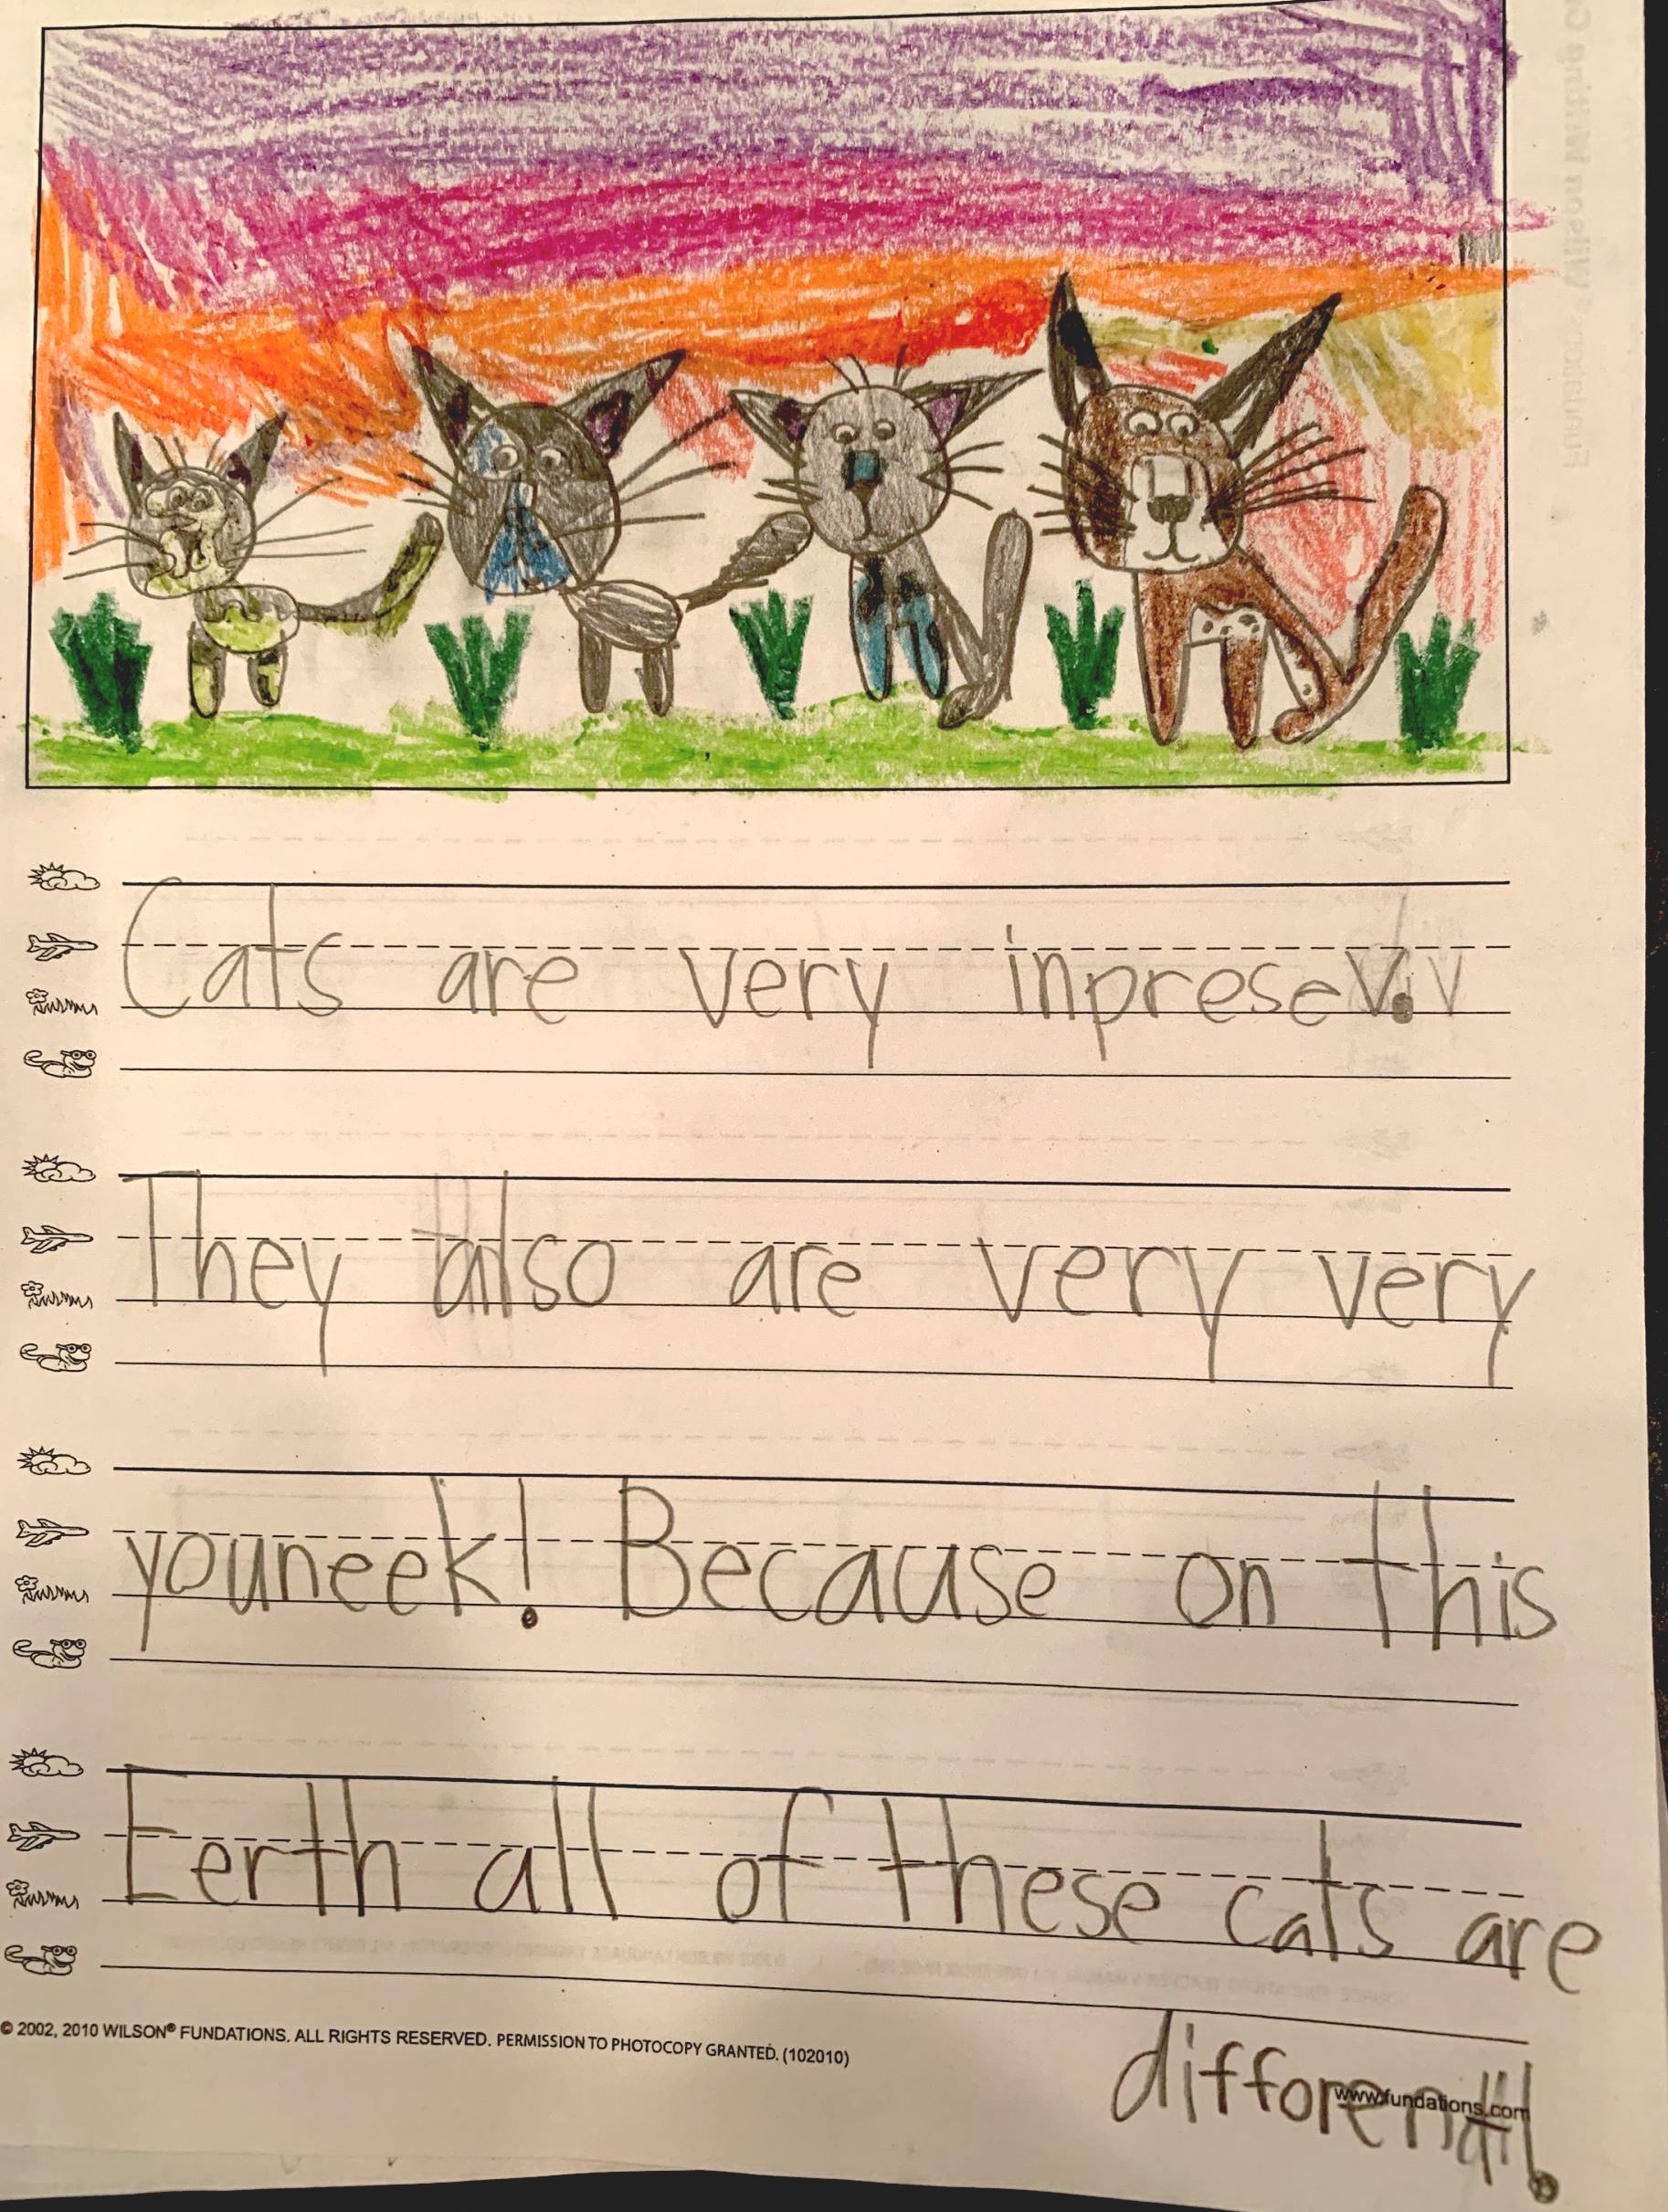 Cats are very inpresev. v
They also are very very
youneek! Because on this
Eerth all of these cats are
© 2002, 2010 WILSON® FUNDATIONS. ALL RIGHTS RESERVED. PERMISSION TO PHOTOCOPY GRANTED. (102010)
www.fundations.com
different!